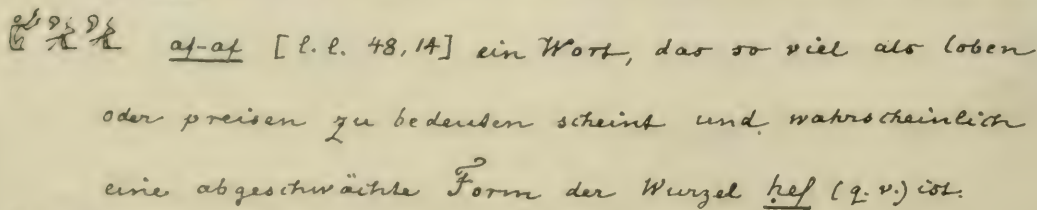 af-af [l. l. 48, 14] ein Wort, das so viel als loben
oder preisen zu bedeuten scheint und wahrscheinlich
eine abgeschwächte Form der Wurzel ḥef (q. v.) ist.